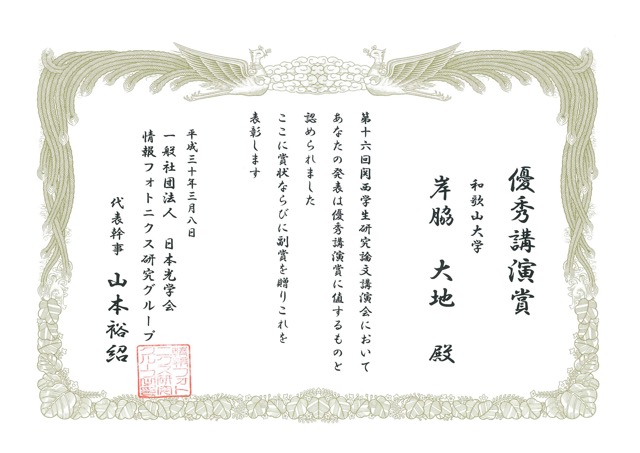 優秀講演賞
和歌山大学
岸脇 大地 殿
第十六回関西学生研究論文講演会において
あなたの発表は優秀講演賞に値するものと
認められました
ここに賞状ならびに副賞を贈りこれを
表彰します
平成三十年三月八日
一般社団法人 日本光学会
情報フォトニクス研究グループ
代表幹事 山本裕紹